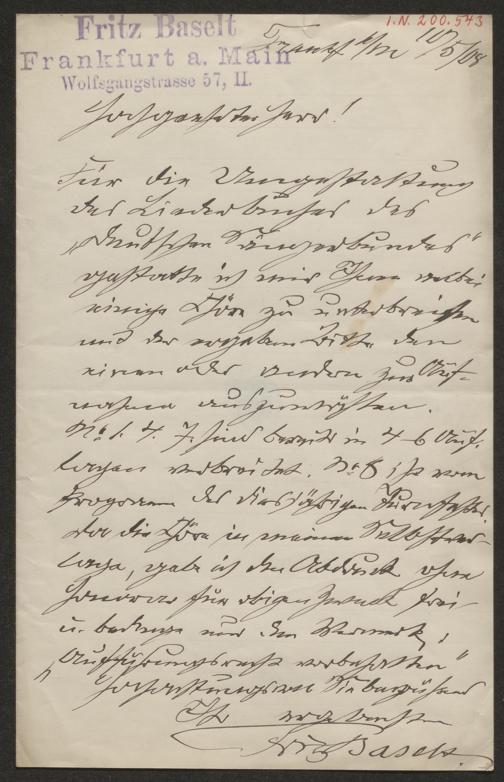 Fritz Baselt
Frankfurt a. Main
Wolfsgangstrasse 57, II.
I.N. 200.543
Frankf a/M 10/5/08
Hochgeehrter Herr!
Für die Umgestaltung
des Liederbuches des
„Deutschen Sängerbundes"
gestatte ich mir Ihnen anbei
einige Chöre zu unterbreiten
mit der ergebenen Bitte den
einen oder anderen zur Auf-
nahme auszuwählen.
No 1. 4. 7. sind bereits in 4-6 Auf-
lagen verbreitet. No 8 ist vom
Programm des diesjährigen Turnfestes.
Da die Chöre in meinem Selbstver-
lage, gebe ich den Abdruck ohne
Honorar für obigen Zweck frei
u. bedinge nur den Vermerk,
„Aufführungsrecht vorbehalten"
Hochachtungsvoll Sie begrüßend
Ihr ergebenster
Fritz Baselt.